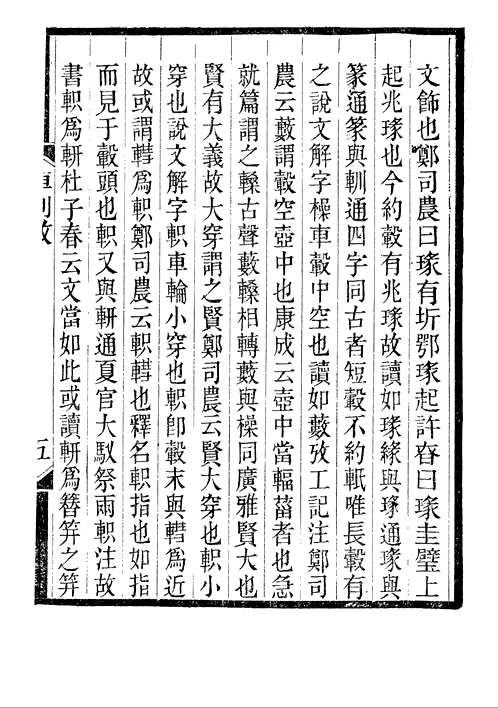 文飾也鄭司農曰瑑有圻鄂瑑起許春曰瑑圭璧上
起兆瑑也今約轂有兆瑑故讀如瑑緣與瑑通瑑與
篆通篆與軔通四字同古者短轂不約軝唯長轂有
之說文解字橾車轂中空也讀如藪攷工記注鄭司
農云藪謂轂空壺中也康成云壺中當輻菑者也急
就篇謂之轑古聲藪轑相轉藪與橾同廣雅賢大也
賢有大義故大穿謂之賢鄭司農云賢大穿也軹小
穿也說文解字軹車輪小穿也軹卽轂末與轊爲近
故或謂轊爲軹鄭司農云軹轊也釋名軹指也如指
而見于轂頭也軹又與軒通夏官大馭祭兩軹注故
書軹爲軒杜子春云文當如此或讀軒爲簪笄之笄
車制攷
五